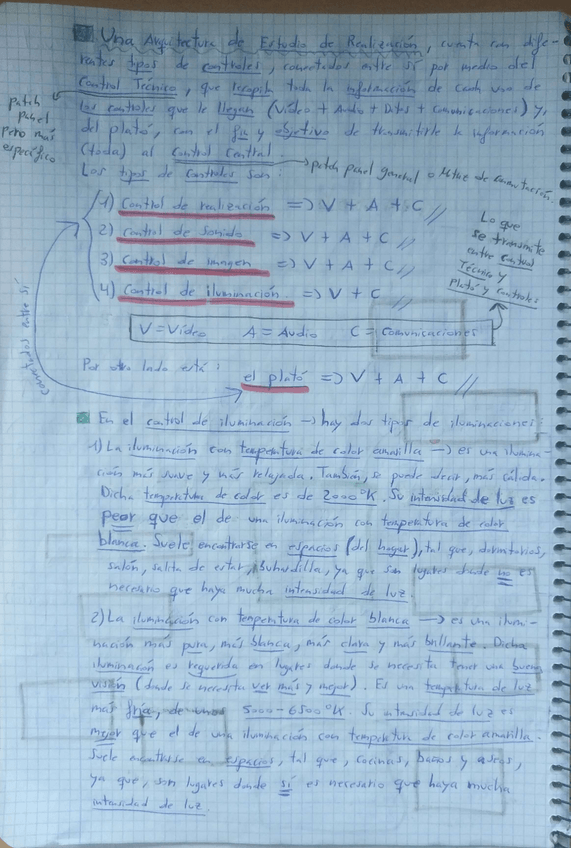 Una Arquitectura de Estudio de Realización, cuenta con dife-
rentes tipos de controles, conectados entre sí por medio del
Control Técnico, que recopila toda la información de cada uno de
los controles que le llegan (Vídeo + Audio + Datos + Comunicaciones) y,
del plató, con el fin y objetivo de transmitirle la información
(toda) al Control Central.
patch
panel
pero más
específico
patch panel general o máster de conmutación.
Los tipos de controles son:
1) Control de realización => V + A + C //
2) Control de sonido => V + A + C //
3) Control de imagen => V + A + C //
4) Control de iluminación => V + C //
Lo que
se transmite
entre Control
Técnico y
Plató y controles
V = Vídeo A = Audio C = Comunicaciones
conectados entre sí
Por otro lado está:
el plató => V + A + C //
En el control de iluminación → hay dos tipos de iluminaciones:
1) La iluminación con temperatura de color amarilla → es una ilumina-
ción más suave y más relajada. También, se puede decir, más cálida.
Dicha temperatura de color es de 2000ºK. Su intensidad de luz es
peor que el de una iluminación con temperatura de color
blanca. Suele encontrarse en espacios (del hogar), tal que, dormitorios,
salón, salita de estar, buhardilla, ya que son lugares donde no es
necesario que haya mucha intensidad de luz.
2) La iluminación con temperatura de color blanca → es una ilumi-
nación más pura, más blanca, más clara y más brillante. Dicha
iluminación es requerida en lugares donde se necesita tener una buena
visión (donde se necesita ver más y mejor). Es una temperatura de luz
más fría, de unos 5000-6500ºK. Su intensidad de luz es
mejor que el de una iluminación con temperatura de color amarilla.
Suele encontrarse en espacios, tal que, cocinas, baños y aseos,
ya que, son lugares donde sí es necesario que haya mucha
intensidad de luz.